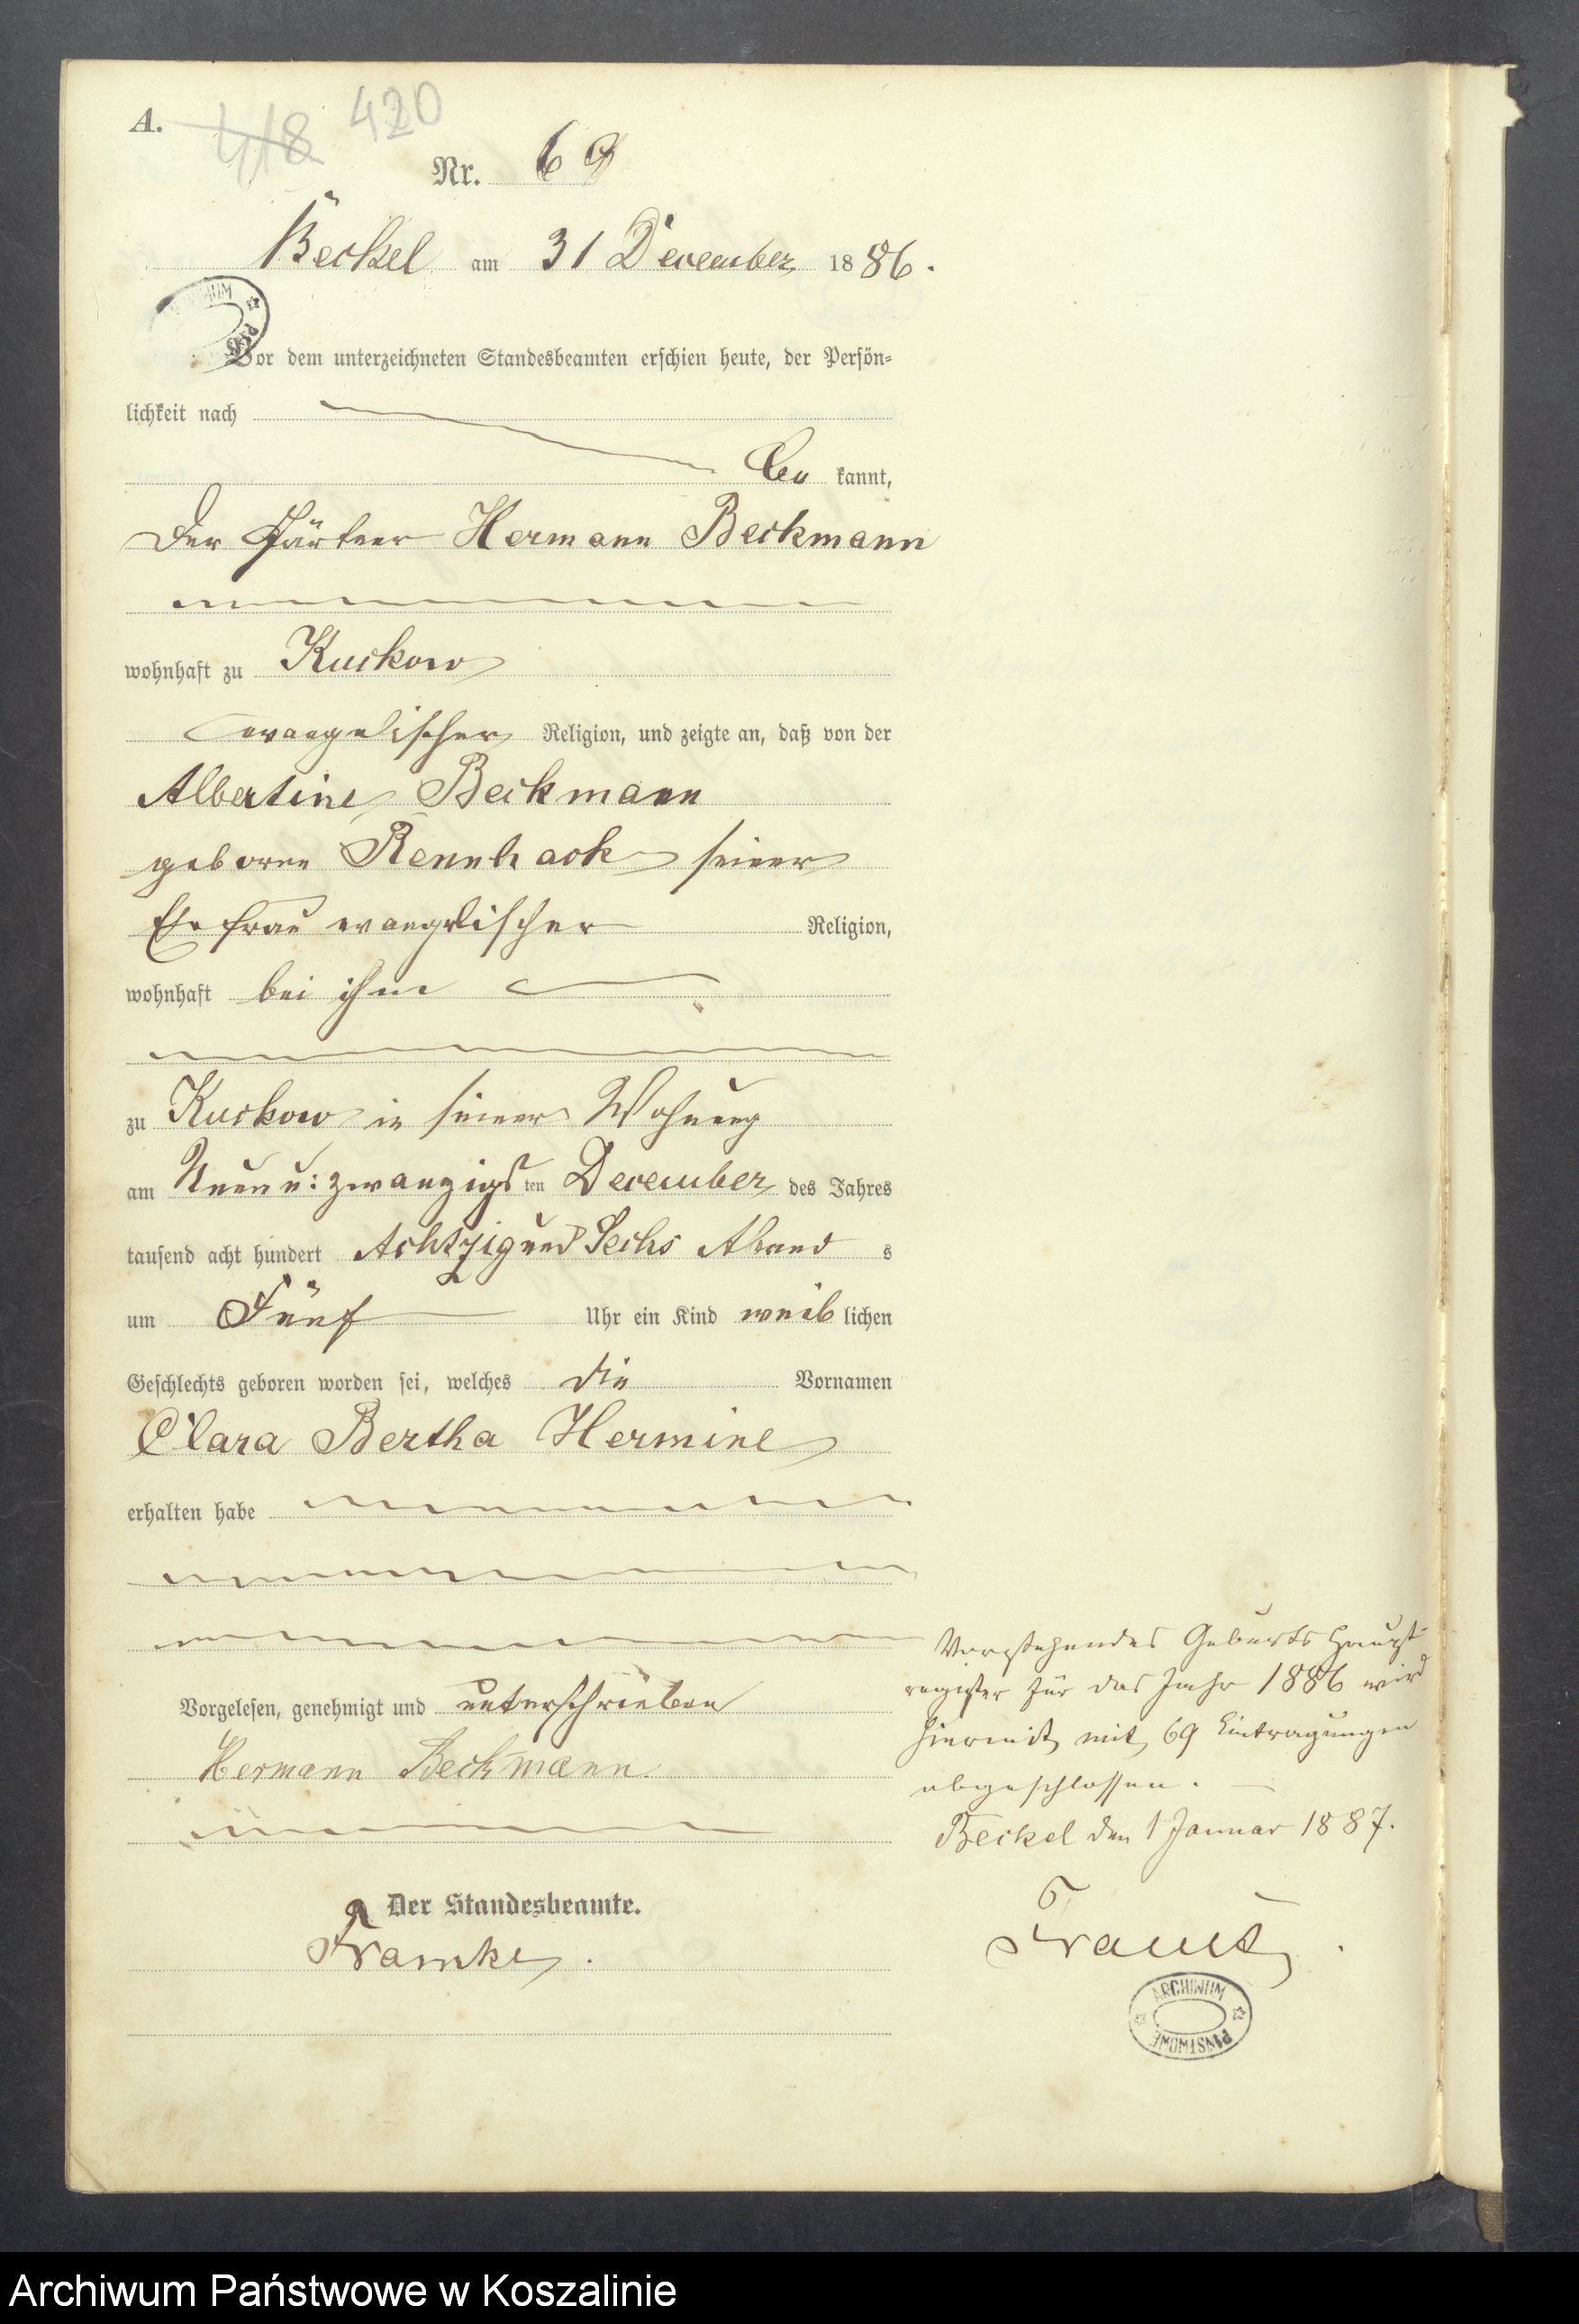 A.
418 420
Nr. 69
Beckel am 31 December 1886.
ARCHIWUM
Vor dem unterzeichneten Standesbeamten erschien heute, der Persön-
lichkeit nach
be kannt,
der Gärtner Hermann Beckmann
wohnhaft zu Kuckow
evangelischer Religion, und zeigte an, daß von der
Albertine Beckmann
geborne Rennhack seiner
Ehefrau evangelischer Religion,
wohnhaft bei ihm
zu Kuckow in seiner Wohnung
am Neun u: zwanzigsten December des Jahres
tausend acht hundert Achtzig und Sechs Abend s
um Fünf Uhr ein Kind weiblichen
Geschlechts geboren worden sei, welches die Vornamen
Clara Bertha Hermine
erhalten habe
Vorgelesen, genehmigt und unterschrieben
Hermann Beckmann
Der Standesbeamte.
Framke.
Vorstehendes Geburts Haupt-
register für das Jahr 1886 wird
hiermit mit 69 Eintragungen
abgeschlossen.
Beckel den 1 Januar 1887.
ARCHIWUM
PAŃSTWOWE
Archiwum Państwowe w Koszalinie